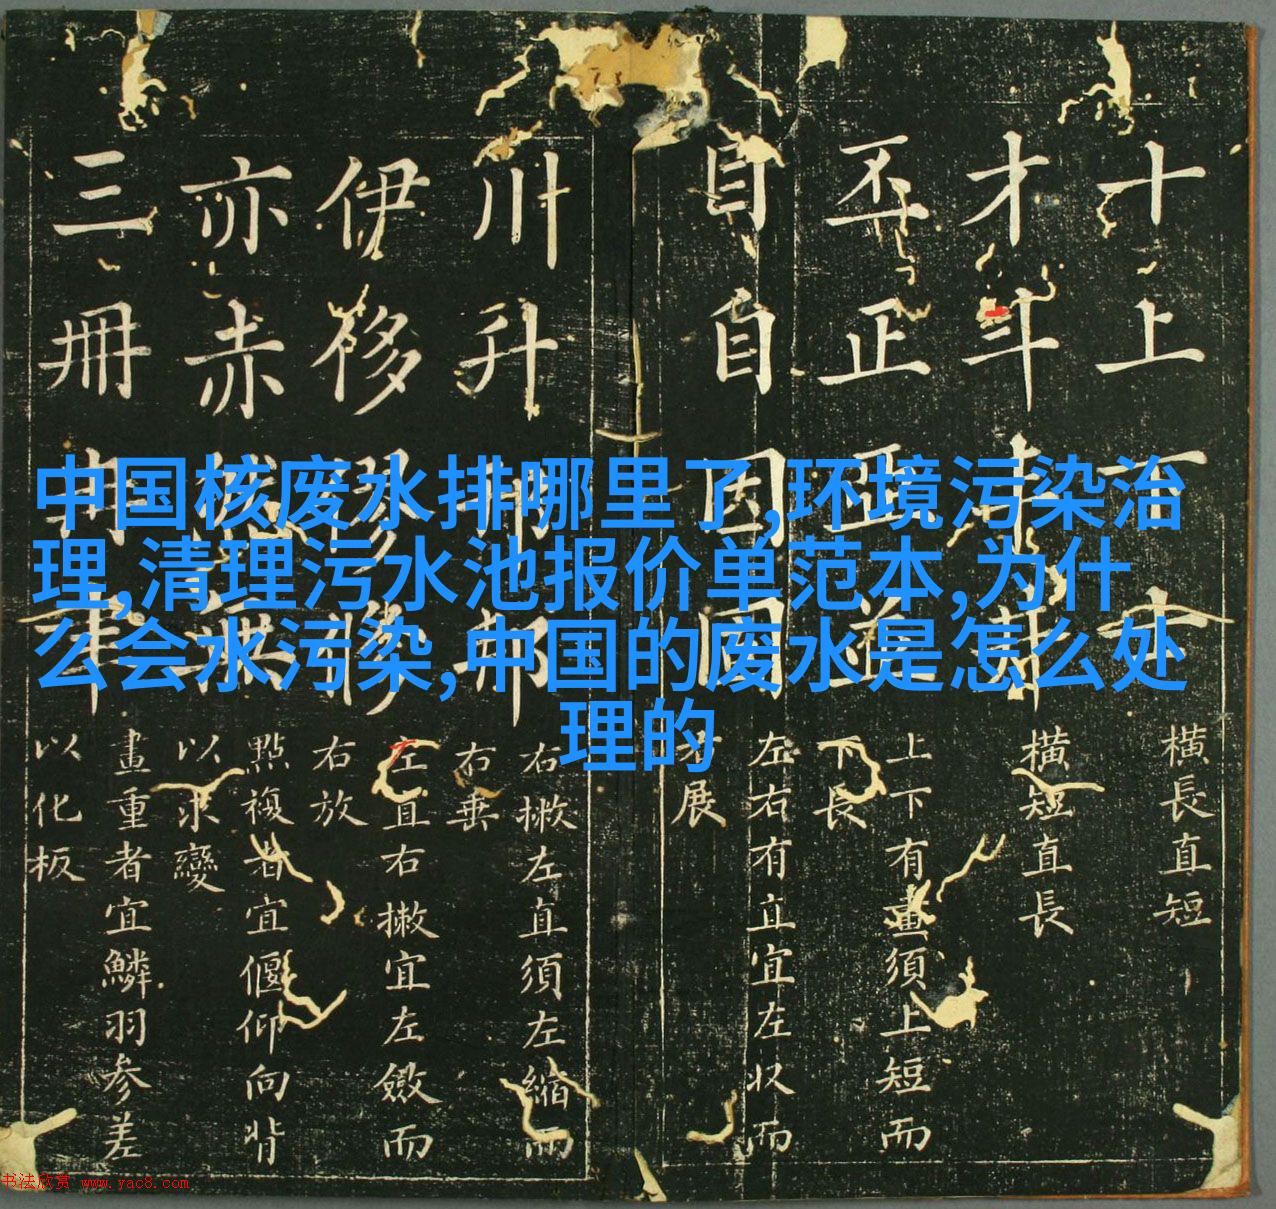 中国核废水排哪里了,环境污染治
理,清理污水池报价单范本,为什
么会水污染,中国的废水是怎么处
理的
十上
橫長直短
才斗
橫短直長
丕正
上下有畫須上短而
下長
目自因固
左右有直宜左收而
右展
川升
右撇左直須左縮而
右垂
伊移
左直右撇宜左斂而
右放
亦赤
點複者宜偃仰向背
以求變
三冊
畫重者宜鱗羽参差
以化板
书法欣赏 www.yac8.com